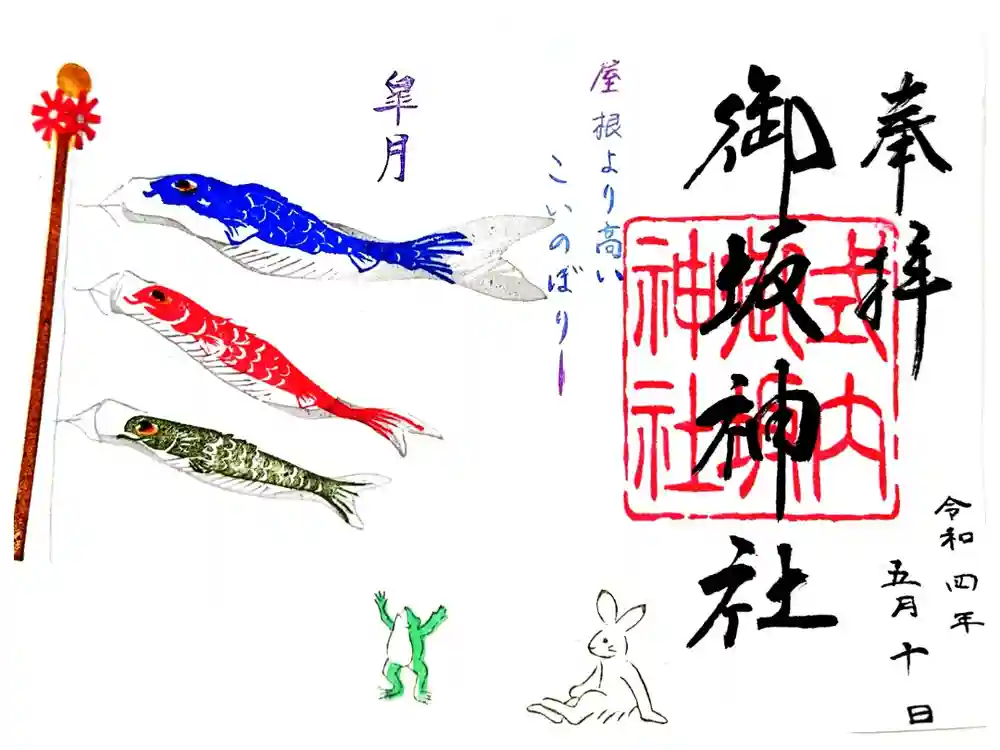 奉拝
御坂神社
式内
御坂
神社
令和四年
五月十日
屋根より高い
こいのぼりー
皐月